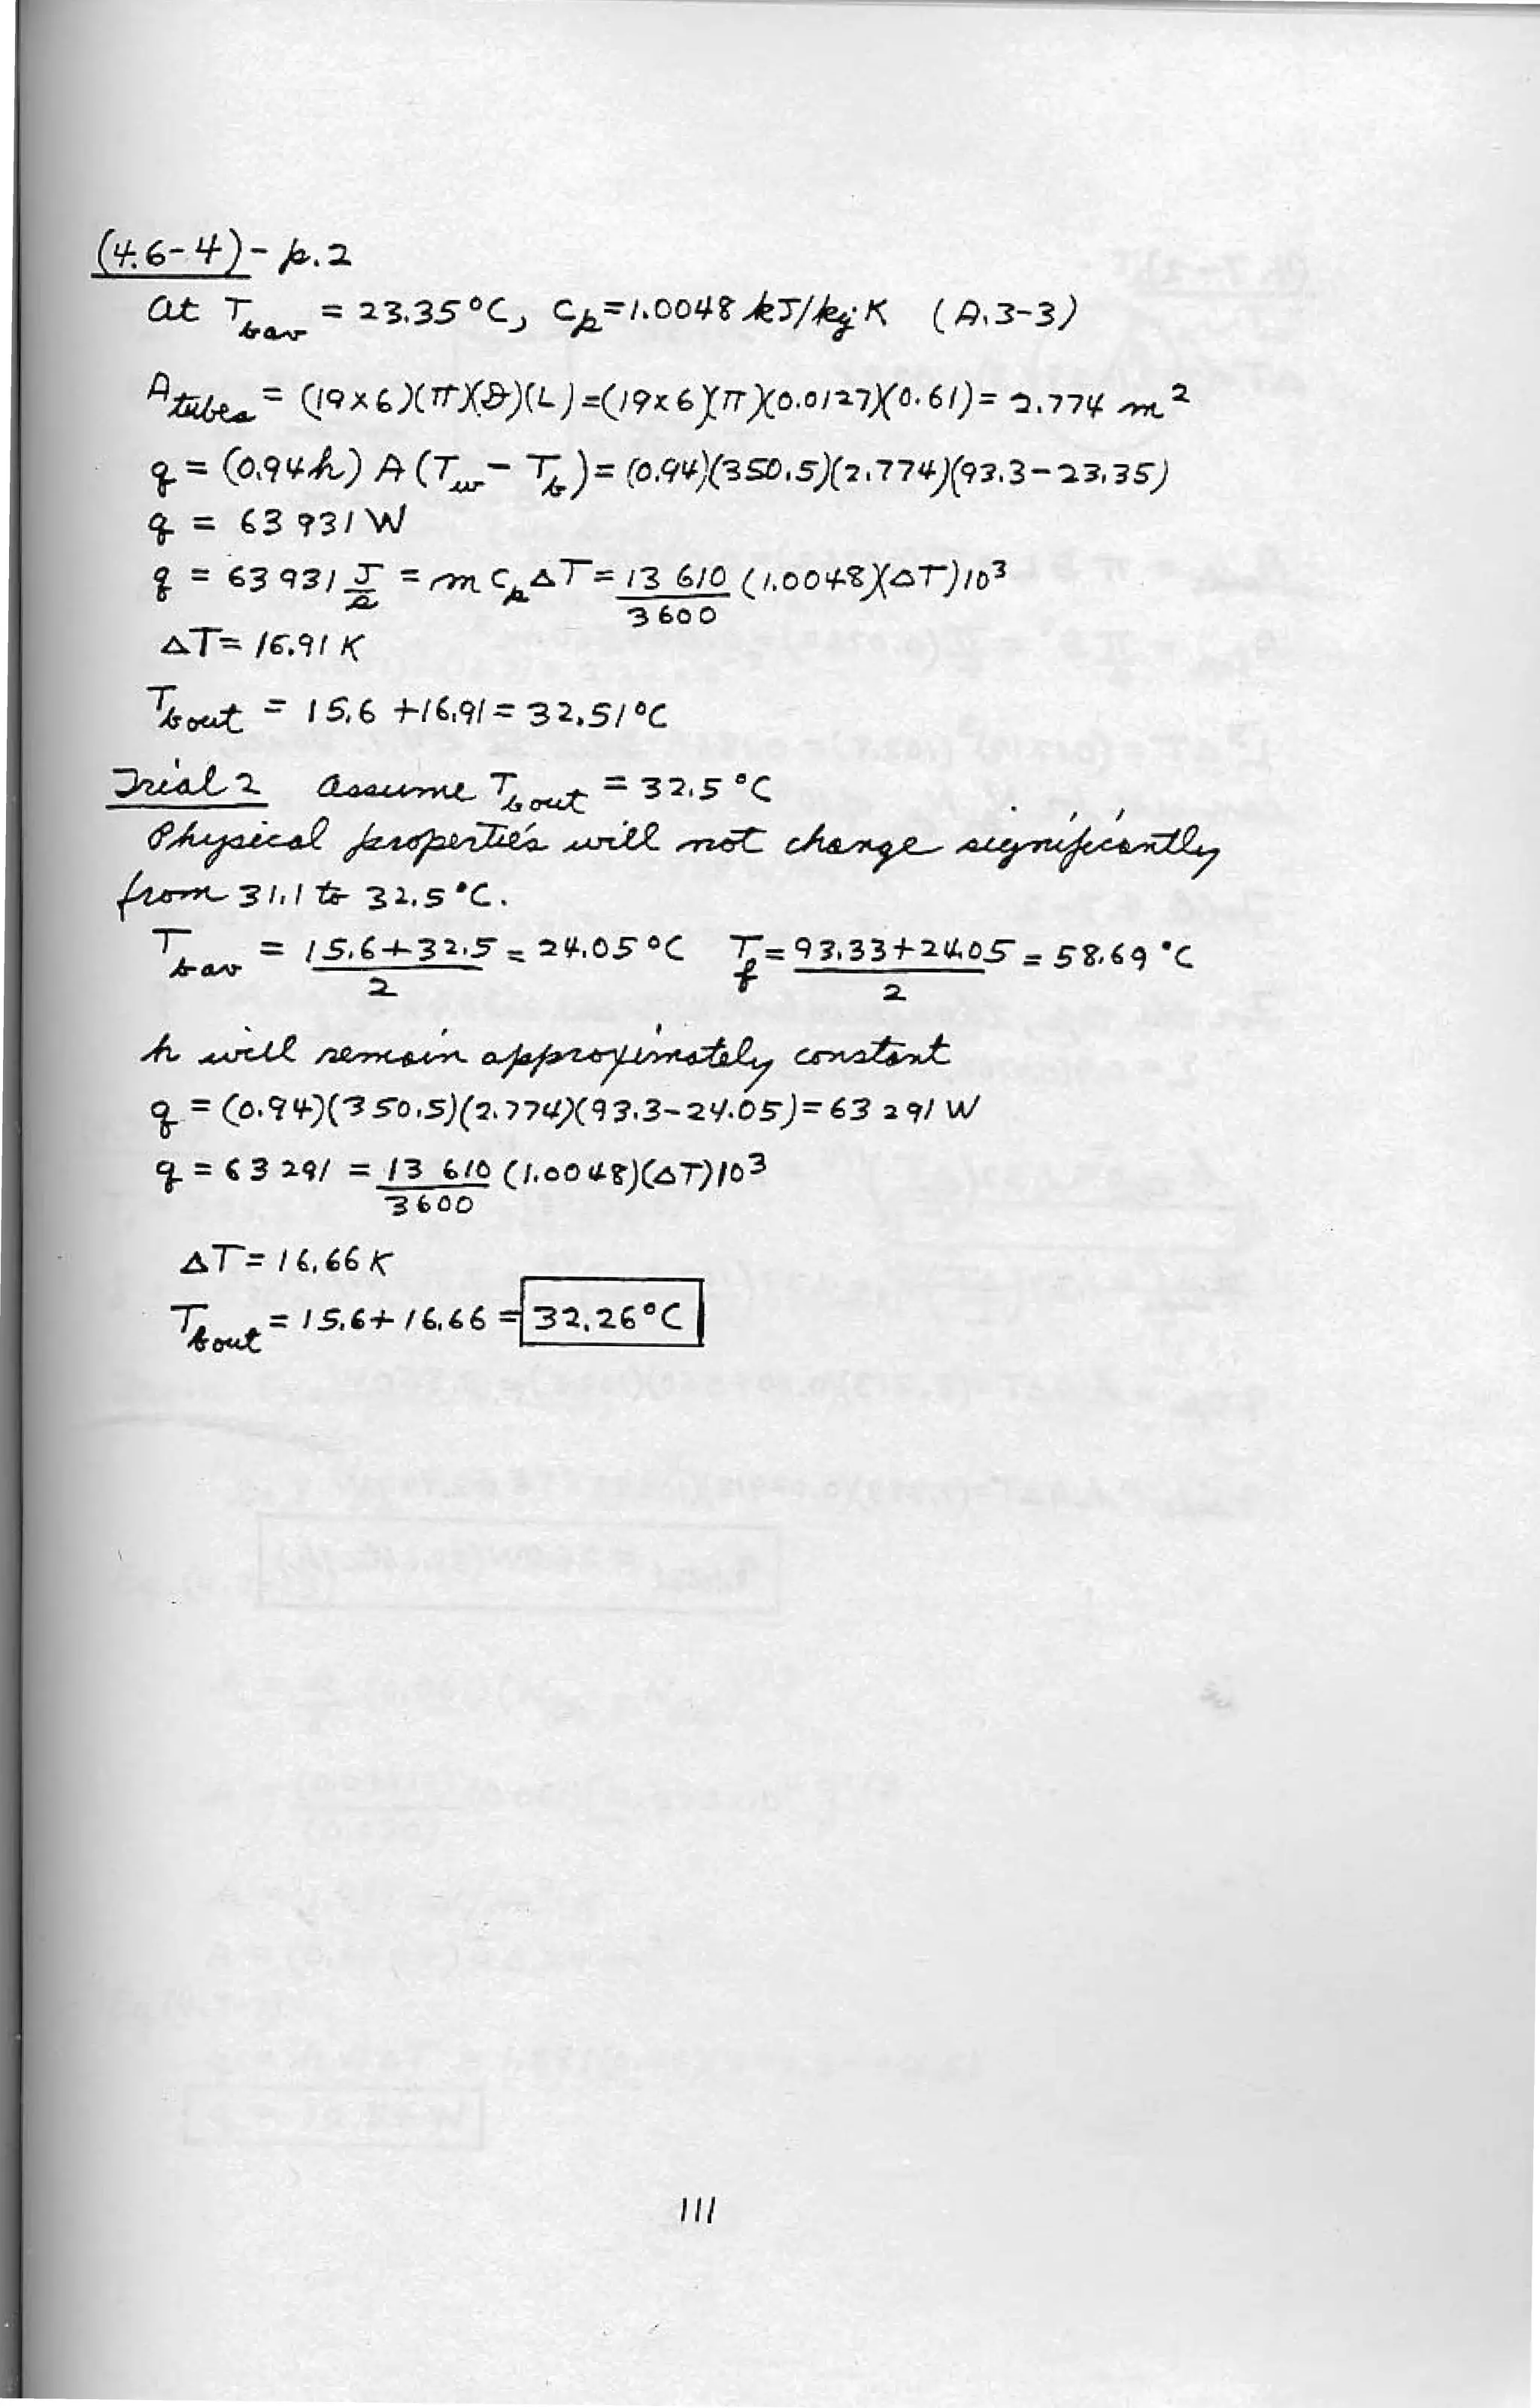 (4.6-4)-p.2
at T_bav = 23.35°C, Cp=1.0048 kJ/kg·K (A.3-3)
A_tubes = (19x6)(π)(D)(L)=(19x6)(π)(0.0127)(0.61)= 2.774 m²
q = (0.94h) A (T_w - T_b)= (0.94)(350.5)(2.774)(93.3-23.35)
q = 63 931 W
q = 63 931 J/s = m Cp ΔT= 13 610/3600 (1.0048)(ΔT)10³
ΔT= 16.91 K
T_bout = 15.6 +16.91= 32.51°C
Trial 2 Assume T_bout = 32.5°C
Physical properties will not change significantly
from 31.1 to 32.5°C.
T_bav = 15.6+32.5/2 = 24.05°C T_f= 93.33+24.05/2 = 58.69°C
h will remain approximately constant
q = (0.94)(350.5)(2.774)(93.3-24.05)=63 291 W
q = 63 291 = 13 610/3600 (1.0048)(ΔT)10³
ΔT= 16.66 K
T_bout = 15.6+16.66 = 32.26°C
111